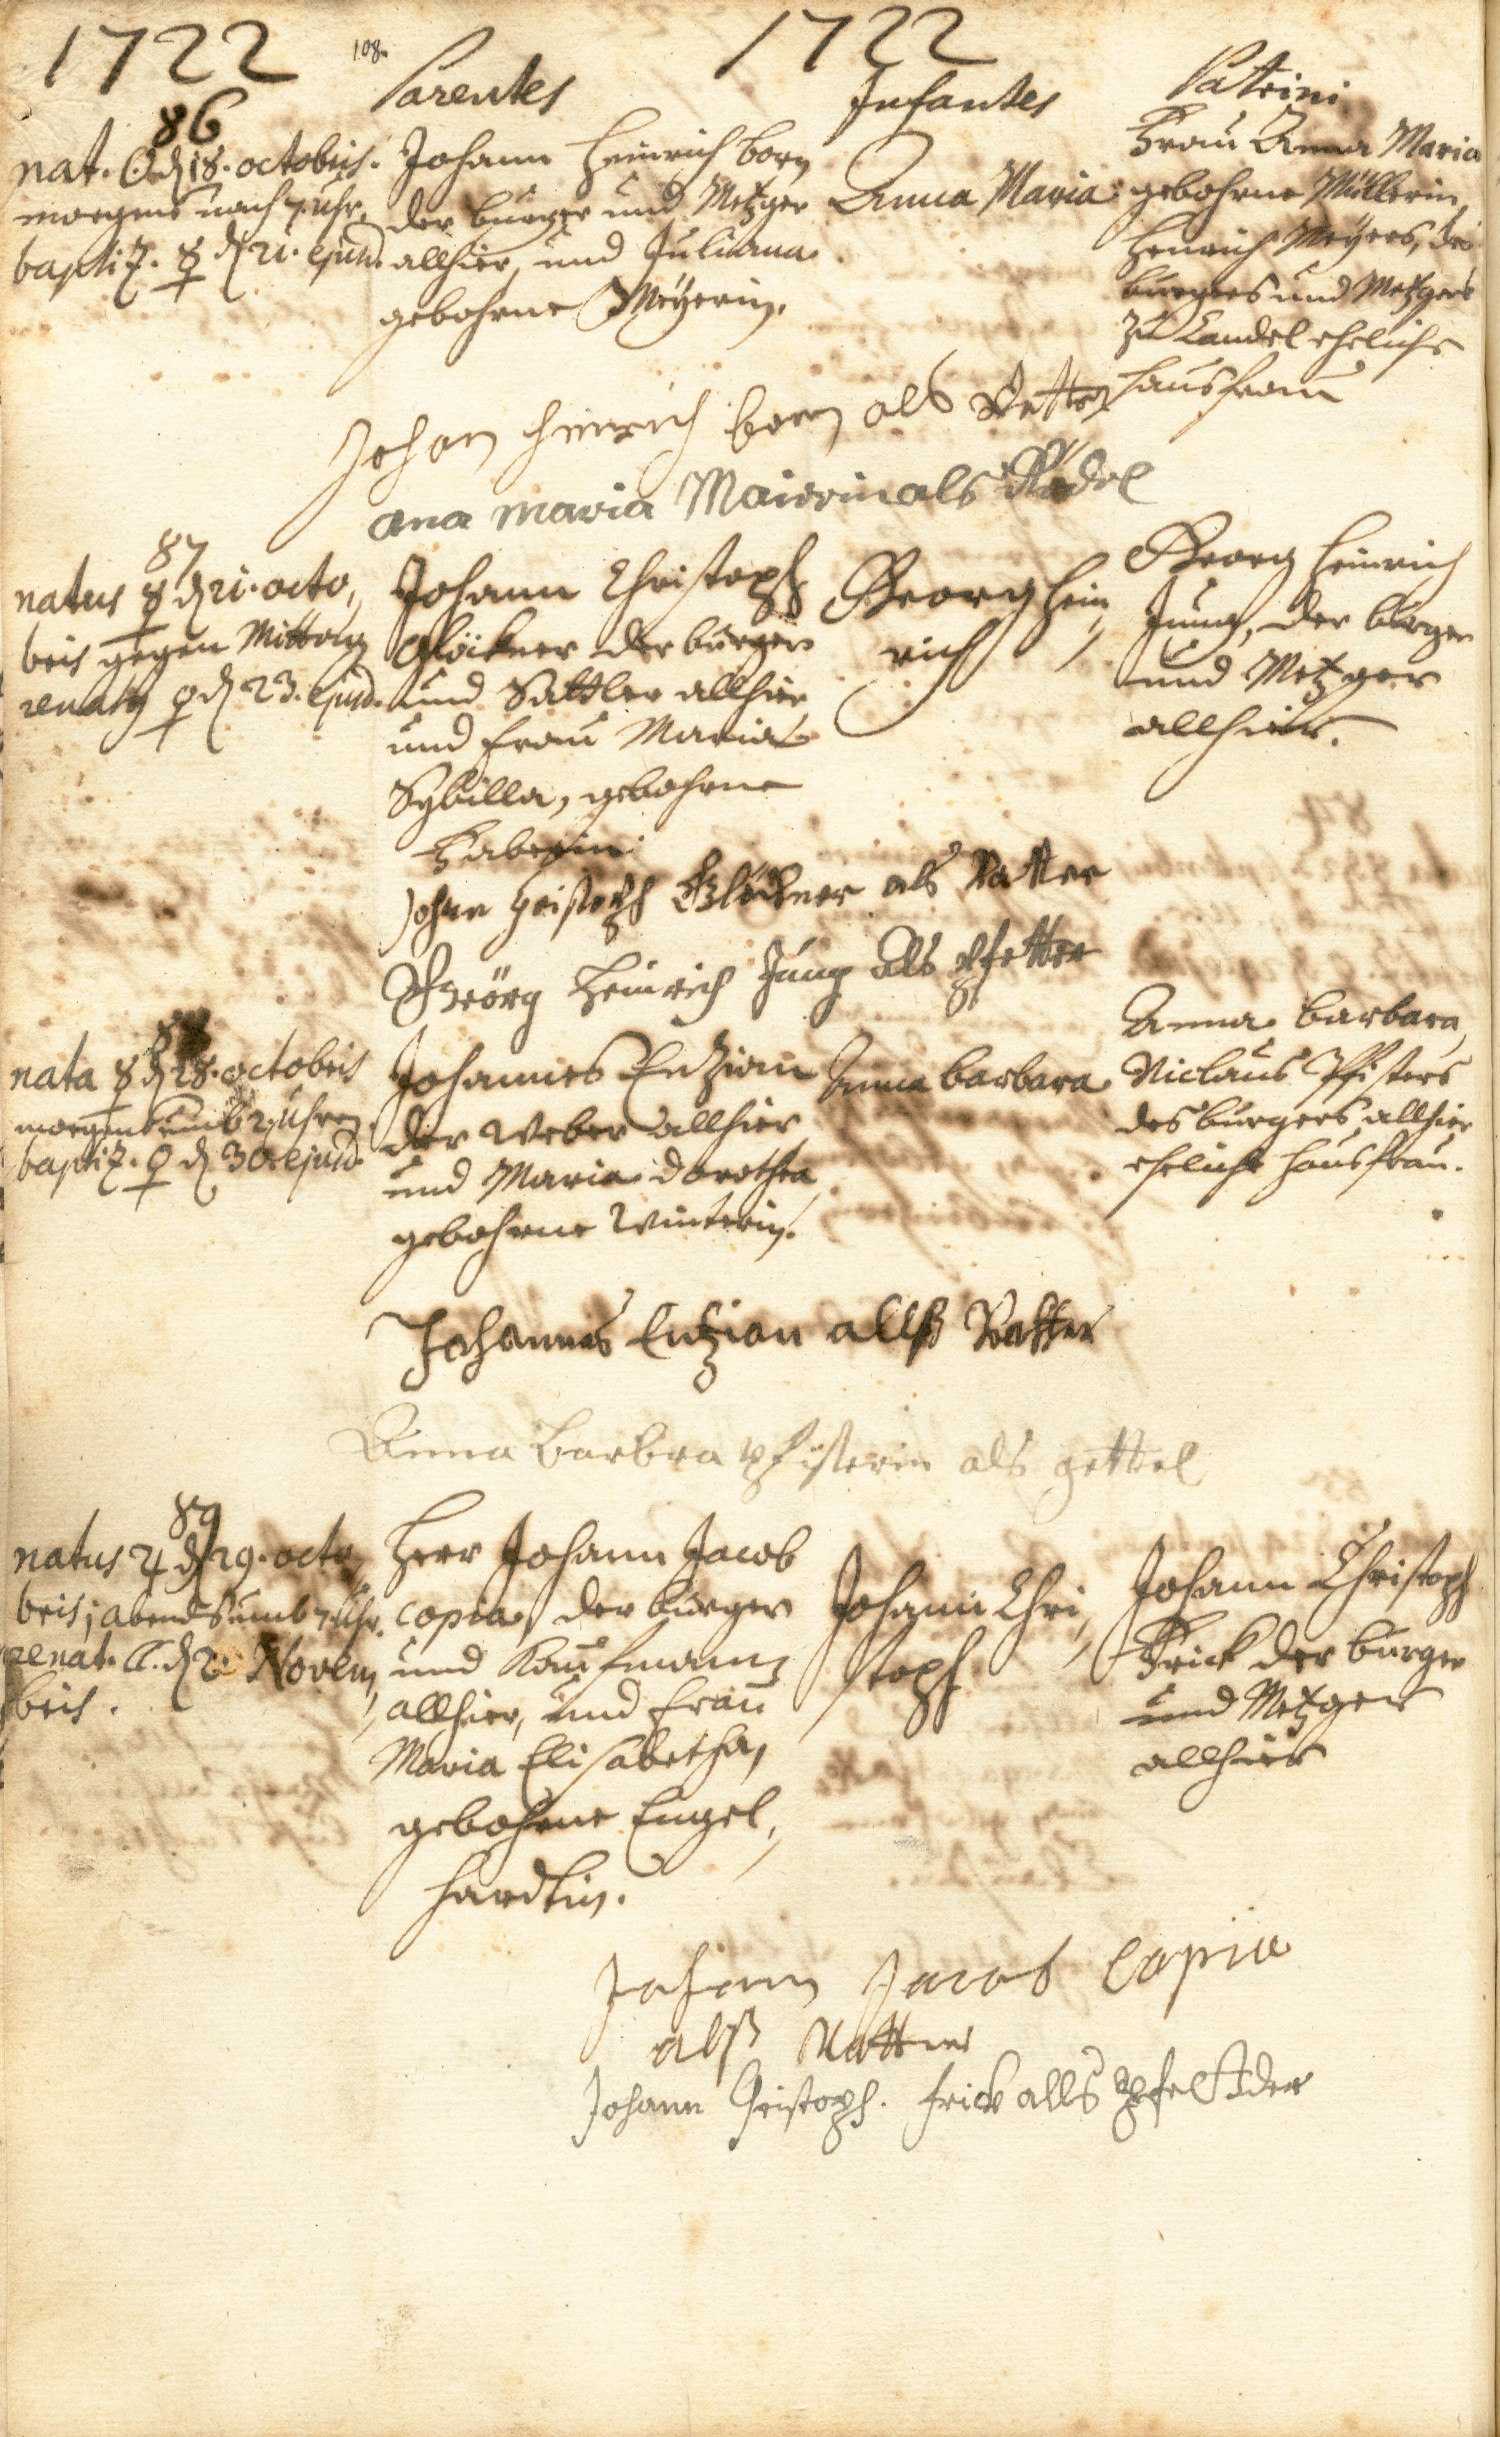 1722 108. 1722
Parentes Infantes Patrini
86
nat. d. 18. octobris.
morgens nach 7. uhr.
baptiz. ☿ d. 21. ejusd.
Johann Heinrich Born
der burger und Metzger
allhier, und Juliana
gebohrne Meÿerin.
Anna Maria
Frau Anna Maria
gebohrne Müllerin,
Henrich Meÿers, des
burgers und Metzgers
zu Candel eheliche
haussfrau
Johan Hinrich born als Vatter
ana maria Maierin als Gödel
87
natus ☿ d. 21. octo,
bris gegen Mittag
renatus ♀ d. 23. ejusd.
Johann Christoph
Glöckner der burger
und Sattler allhier
und Frau Maria
Sybilla, gebohrne
Faberin.
Georg Hein,
rich
Georg Heinrich
Jung, der burger
und Metzger
allhier.
Johan Christoph Glöckner als Vatter
Geörg Heinrich Jung als Pfetter
88
nata ☿ d. 28. octobris
morgens umb 2 Uhren.
baptiz. ♀ d. 30. ejusd.
Johannes Entzian
der Weber allhier
und Maria Dorothea
gebohrne Winterin.
Anna Barbara
Anna Barbara,
Niclaus Pfisters
des burgers allhier
eheliche Haussfrau.
Johannes Entzion allß Vatter
Anna Barbra Pfisterin als gettel
89
natus ♃ d. 29. octo,
bris; abends umb 7 Uhr.
renat. d. 2. Novem,
bris.
Herr Johann Jacob
Copia, der burger
und Kaufmann
allhier, und Frau
Maria Elisabetha,
gebohrne Engel,
hardtin.
Johann Chri,
stoph
Johann Christoph
Frick der burger
und Metzger
allhier
Johann Jacob Copia
alß Vatter
Johann Christoph. Frick alls Pfetder